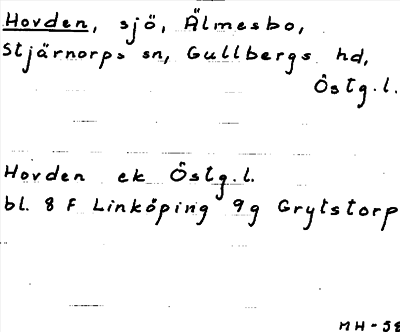 Hovden, sjö, Älmesbo,
Stjärnorps sn, Gullbergs hd,
Östg.l.
Hovden ek Östg.l.
bl. 8 F Linköping 9g Grytstorp
MH-58